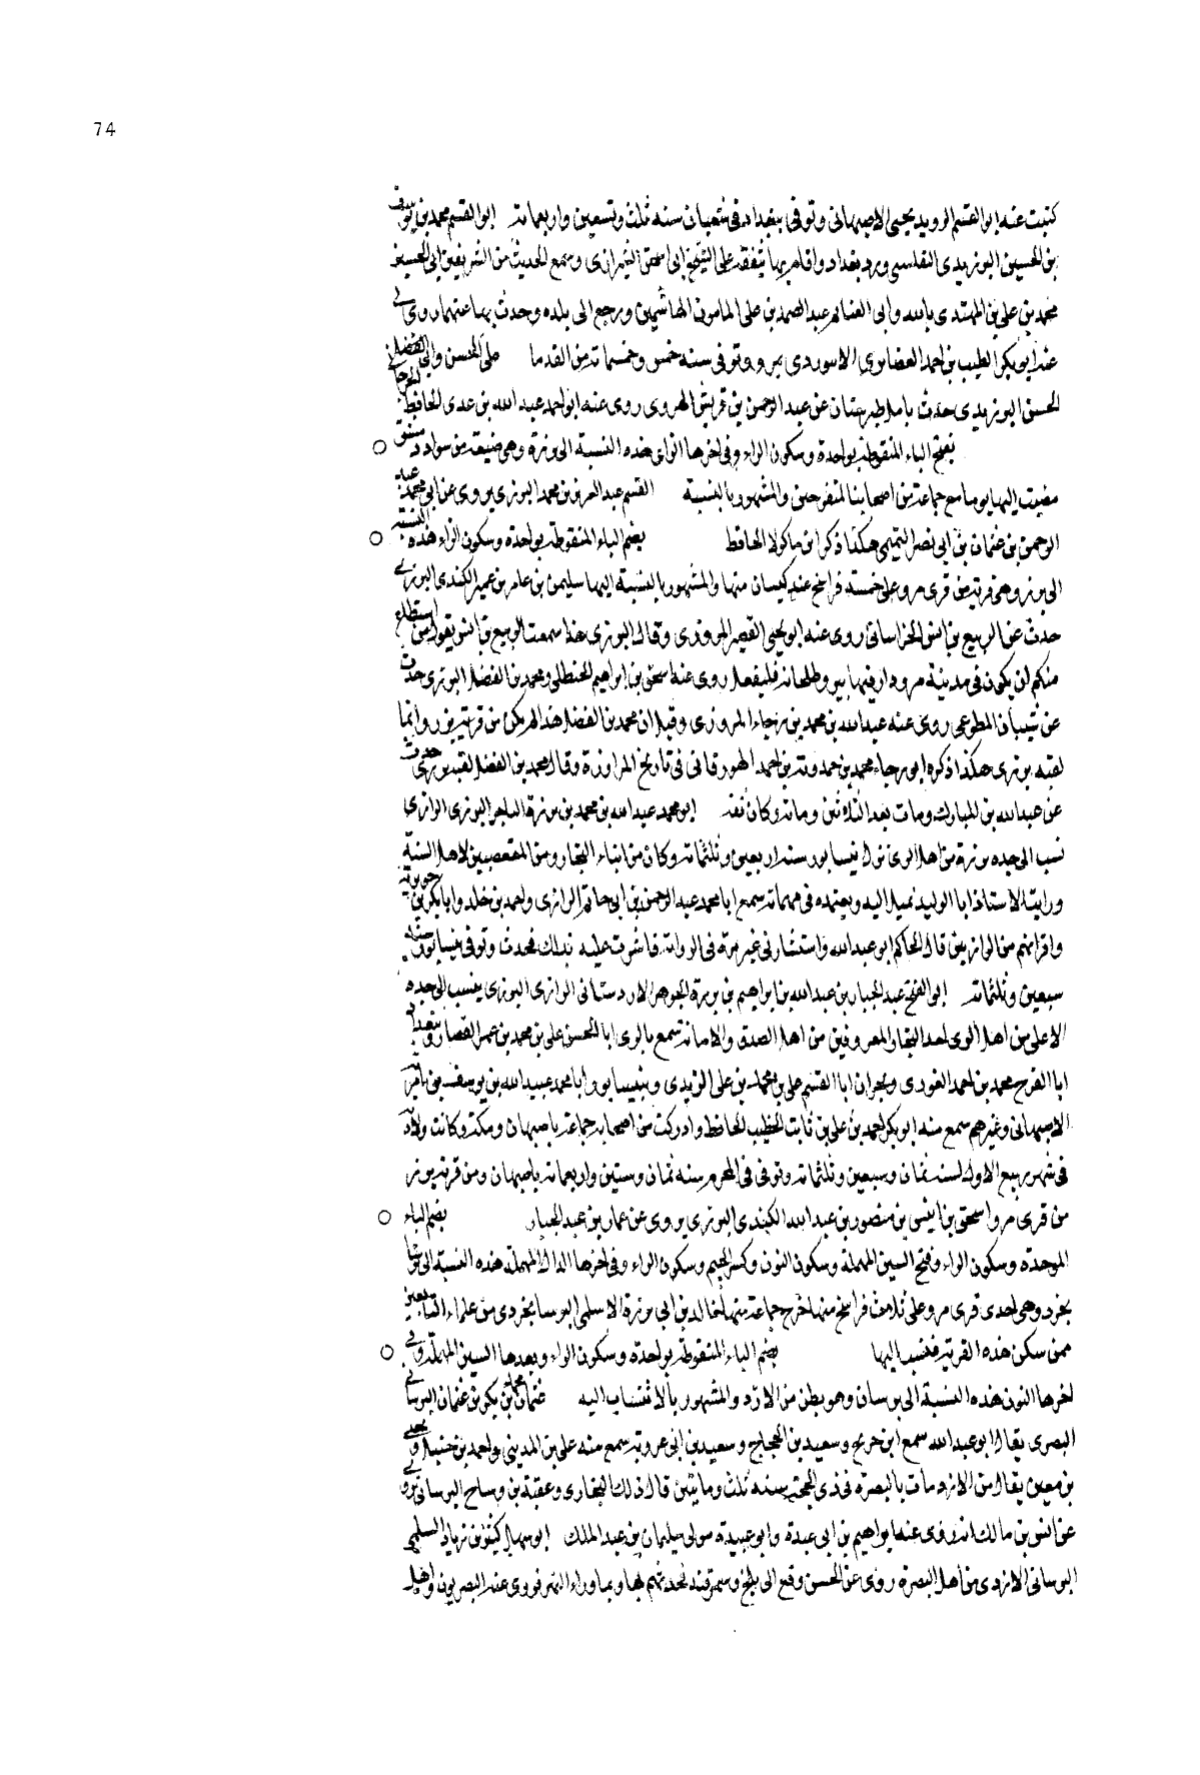 74
كتبت عنه ابو القسم الرويد يحيى الاصبهانى وتوفى ببغداد فى شعبان سنه ثلث وتسعين واربعمائة ابو القسم محمد بن يوسف
بن الحسين البزيدى التفلسى ورد بغداد واقام بها يتفقه على الشيخ ابى اسحق الشيرازى وسمع الحديث من الشريفين ابى الحسين
محمد بن على بن المهتدى بالله وابى الغنائم عبد الصمد بن على المامون الهاشميين ورجع الى بلده وحدث بها عنهما روى لى
عنه ابو بكر الطيب بن احمد العضايرى الابيوردى بمرو وتوفى سنه خمس وخمسمائة من القدما على الحسن وابى الفضل
الحسن البزيدى حدث بامل طبرستان عن عبد الرحمن بن قريش الهروى روى عنه ابو احمد عبد الله بن عدى الحافظ الجرجانى
بفتح الباء المنقوطة بواحدة وسكون الراء وفى اخرها الزاى هذه النسبة الى برزة وهى ضيعة من سواد دمشق
مضيت اليها يوما مع جماعة من اصحابنا المتفرجين والمشهور بالنسبة القسم عبد العزيز بن محمد البرزى يروى عن ابى محمد عبد
الرحمن بن عثمان بن ابى نصر التميمى هكذا ذكر ابن ماكولا الحافظ بضم الباء المنقوطة بواحدة وسكون الراء هذه النسبة
الى برز وهى قرية من قرى مرو على خمسة فراسخ عند كمسان منها والمشهور بالنسبة اليها سليمن بن عامر بن عمير الكندى البرزى
حدث عن الربيع بن انس الخراسانى روى عنه ابو يحيى القصير المروزى وقال البرزى هذا سمعت الربيع بن انس يقول من استطاع
منكم ان يكون فى مدينة مرو دار فيها بير وطلحانة فليفعل روى عنه اسحق بن ابراهيم الحنظلى ومحمد بن الفضل البرزى حدث
عن شيبان المطوعى روى عنه عبد الله بن محمد بن رجاء المروزى وقيل ان محمد بن الفضل هذا لم يكن من قرية برز وانما
لقبه برزى هكذا ذكره ابو رجاء محمد بن حمدويه بن احمد الهورقانى فى تاريخ المراوزة وقال محمد بن الفضل لقبه برزى حدث
عن عبد الله بن المبارك ومات بعد الثلاثين ومائة وكان ثقة ابو محمد عبد الله بن محمد بن برزة التاجر البرزى الرازى
نسب الى جده برزة من اهل الرى نزل نيسابور سنة اربعين وثلثمائة وكان من ابناء التجار ومن المتعصبين لاهل السنة
ورايت الاستاذ ابا الوليد يميل اليه ويعتمده فى مهماته سمع ابا محمد عبد الرحمن بن ابى حاتم الرازى واحمد بن خلد وابا بكر بن جويرية
واقرانهم من الرازيين قال الحاكم ابو عبد الله واستشارنى غير مرة فى الرواية فاشرت عليه بذلك فحدث وتوفى بنيسابور سنة
سبعين وثلثمائة ابو الفتح عبد الجبار بن عبد الله بن ابراهيم بن برزة الجوهرى الاردستانى الرازى البرزى ينسب الى جده
الاعلى من اهل الرى احد التجار المعروفين من اهل الصدق والامانة سمع بالرى ابا الحسن على بن محمد بن عمر القصار وببغداد
ابا الفرج محمد بن احمد الغورى وبجرجان ابا القسم على بن محمد بن على الزيدى وبنيسابور ابا محمد عبد الله بن يوسف بن بامويه
الاصبهانى وغيرهم سمع منه ابو بكر احمد بن على بن ثابت الخطيب الحافظ وادركت من اصحابه جماعة باصبهان ومكة وكانت ولادته
فى شهر ربيع الاول سنة ثمان وسبعين وثلثمائة وتوفى فى المحرم سنه ثمان وستين واربعمائة باصبهان ومن قرية برز
من قرى مرو اسحق بن انيس بن منصور بن عبد الله الكندى البرزى يروى عن عمار بن عبد الجبار بضم الباء
الموحدة وسكون الراء وفتح السين المهملة وسكون النون وكسر الجيم وسكون الراء وفى اخرها الدال المهملة هذه النسبة الى برسا
نجرد وهى احدى قرى مرو على ثلاثة فراسخ منها خرج جماعة منها خالد بن ابى برزة الاسلمى البرسانجردى من علماء التابعين
ممن سكن هذه القرية فنسب اليها بضم الباء المنقوطة بواحدة وسكون الراء وبعدها السين المهملة وفى
اخرها النون هذه النسبة الى برسان وهو بطن من الازد والمشهور بالانتساب اليه عثمان محمد بن بكر بن عثمان البرسانى
البصرى يقال ابو عبد الله سمع ابن جريج وسعيد بن الحجاج وسعيد بن ابى عروبة سمع منه على بن المدينى واحمد بن حنبل ويحيى
بن معين يقال من الازد مات بالبصرة فى ذى الحجة سنه ثلث ومائتين قال ذلك البخارى وعقبة بن وساح البرسانى يروى
عن انس بن مالك انه روى عنه ابراهيم بن ابى عبدة وابو عبيدة مولى سليمان بن عبد الملك ابو سهل كثير بن زياد السلمى
البرسانى الازدى من اهل البصرة روى عن الحسن وقع الى بلخ وسمرقند فحدثهم بها وبما وراء النهر فروى عنه البصريون واهل